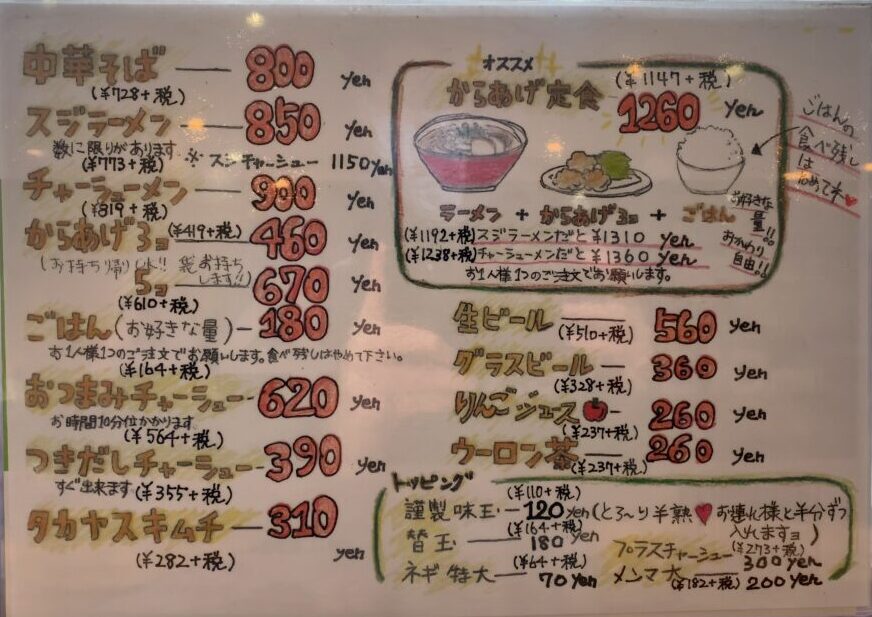 中華そば — 800 yen
(¥728+税)
スジラーメン — 850 yen
数に限りがあります
(¥773+税) ※スジチャーシュー 1150yen
チャーシューメン — 900 yen
(¥819+税)
からあげ3ヨ (¥419+税) 460 yen
(お持ち帰りOK!! 袋お持ちします!!)
5ヨ 670 yen
(¥610+税)
ごはん(お好きな量) — 180 yen
お1人様1つのご注文でお願いします。食べ残しはやめて下さい。
(¥164+税)
おつまみチャーシュー 620 yen
お時間10分位かかります
(¥564+税)
つきだしチャーシュー 390 yen
すぐ出来ます (¥355+税)
タカヤスキムチ — 310 yen
(¥282+税)
オススメ
からあげ定食 (¥1147+税)
1260 yen
ごはんの
食べ残し
は
やめてネ
ラーメン + からあげ3ヨ + ごはん
お好きな
量!!
おかわり
自由!!
(¥1192+税)スジラーメンだと¥1310 yen
(¥1238+税)チャーシューメンだと¥1360 yen
お1人様1つのご注文でお願いします。
生ビール (¥510+税) 560 yen
グラスビール — 360 yen
(¥328+税)
りんごジュース - 260 yen
(¥237+税)
ウーロン茶 — 260 yen
(¥237+税)
トッピング
(¥110+税)
謹製味玉 — 120 yen(とろ〜り半熟♥お連れ様と半分ずつ
入れますヨ)
(¥164+税)
替玉 — 180 yen
プラスチャーシュー (¥273+税) 300 yen
(¥64+税)
ネギ特大 — 70 yen
メンマ大 (¥182+税) 200 yen